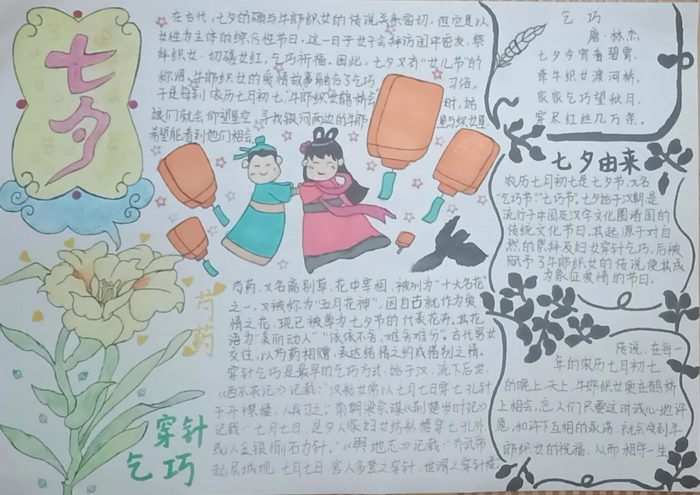 七夕
在古代,七夕的确与牛郎织女的传说关系密切,但它是以
女性为主体的综合性节日,这一日子女子会拜访闺中密友、祭
牛郎织女、切磋女红、乞巧祈福。因此,七夕又有“女儿节”的
称谓,牛郎织女的爱情故事融合了乞巧习俗。
于是每到农历七月初七,牛郎织女鹊桥会时,姑
娘们就会仰望星空,寻找银河两边的牛郎星与织女星
希望能看到他们相会
乞巧
唐·林杰
七夕今宵看碧霄,
牵牛织女渡河桥,
家家乞巧望秋月,
穿尽红丝几万条。
七夕由来
农历七月初七是七夕节,又名
乞巧节“七巧节”七夕始于汉朝是
流行于中国及汉字文化圈诸国的
传统文化节日,其起源于对自
然的崇拜及妇女穿针乞巧,后被
赋予了牛郎织女的传说使其成
为象征爱情的节日。
芍药
芍药,又名离别草,花中宰相,被列为“十大名花”
之一,又被称为“五月花神”,因自古就作为爱
情之花,现已被尊为七夕节的代表花卉,其花
语为“美丽动人”“依依不舍,难舍难分”。古代男女
交往,以芍药相赠,表达结情之约或惜别之情。
穿针乞巧是最早的乞巧方式,始于汉,流于后世
《西京杂记》记载:“汉彩女常以七月七日穿七孔针
于开襟楼,人具习之。”南朝梁宗谋《荆楚岁时记》
记载:“七月七日,是夕人家妇女结彩楼穿七孔外
或以金银愉石为针。”《舆地志》记载:“齐武帝
起层城观,七月七日,宫人多登之穿针,世谓之穿针楼
穿针
乞巧
传说,在每一
年的农历七月初七
的晚上,天上牛郎织女会在鹊桥
上相会,恋人们只要这时诚心地许
愿,和许下互相的承诺,就会受到牛
郎织女的祝福,从而相守一生